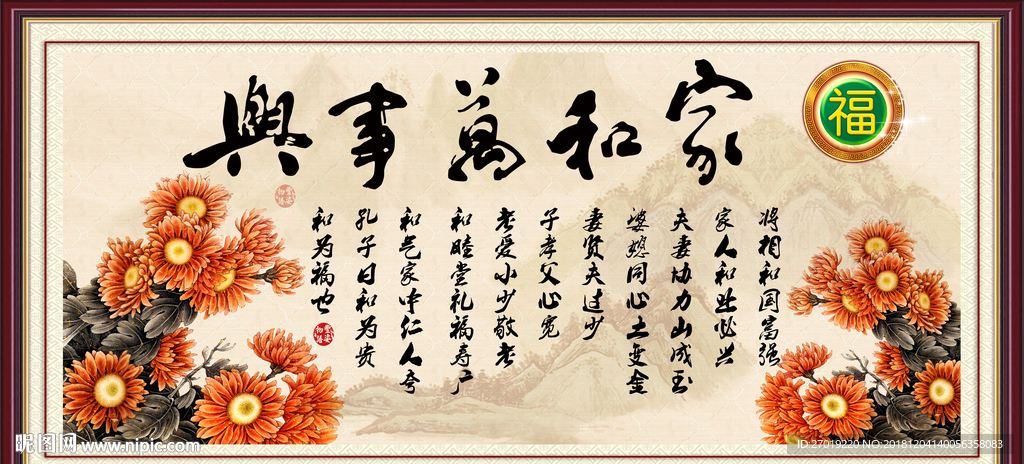 家和萬事興
福
将相和国富强
家人和业必兴
夫妻协力山成玉
婆媳同心土变金
妻贤夫过少
子孝父心宽
老爱小少敬老
和睦堂礼福寿广
和气家中仁人夸
孔子曰和为贵
和为福也
昵图网 www.nipic.com
ID:27019220 NO:20181204140056358083